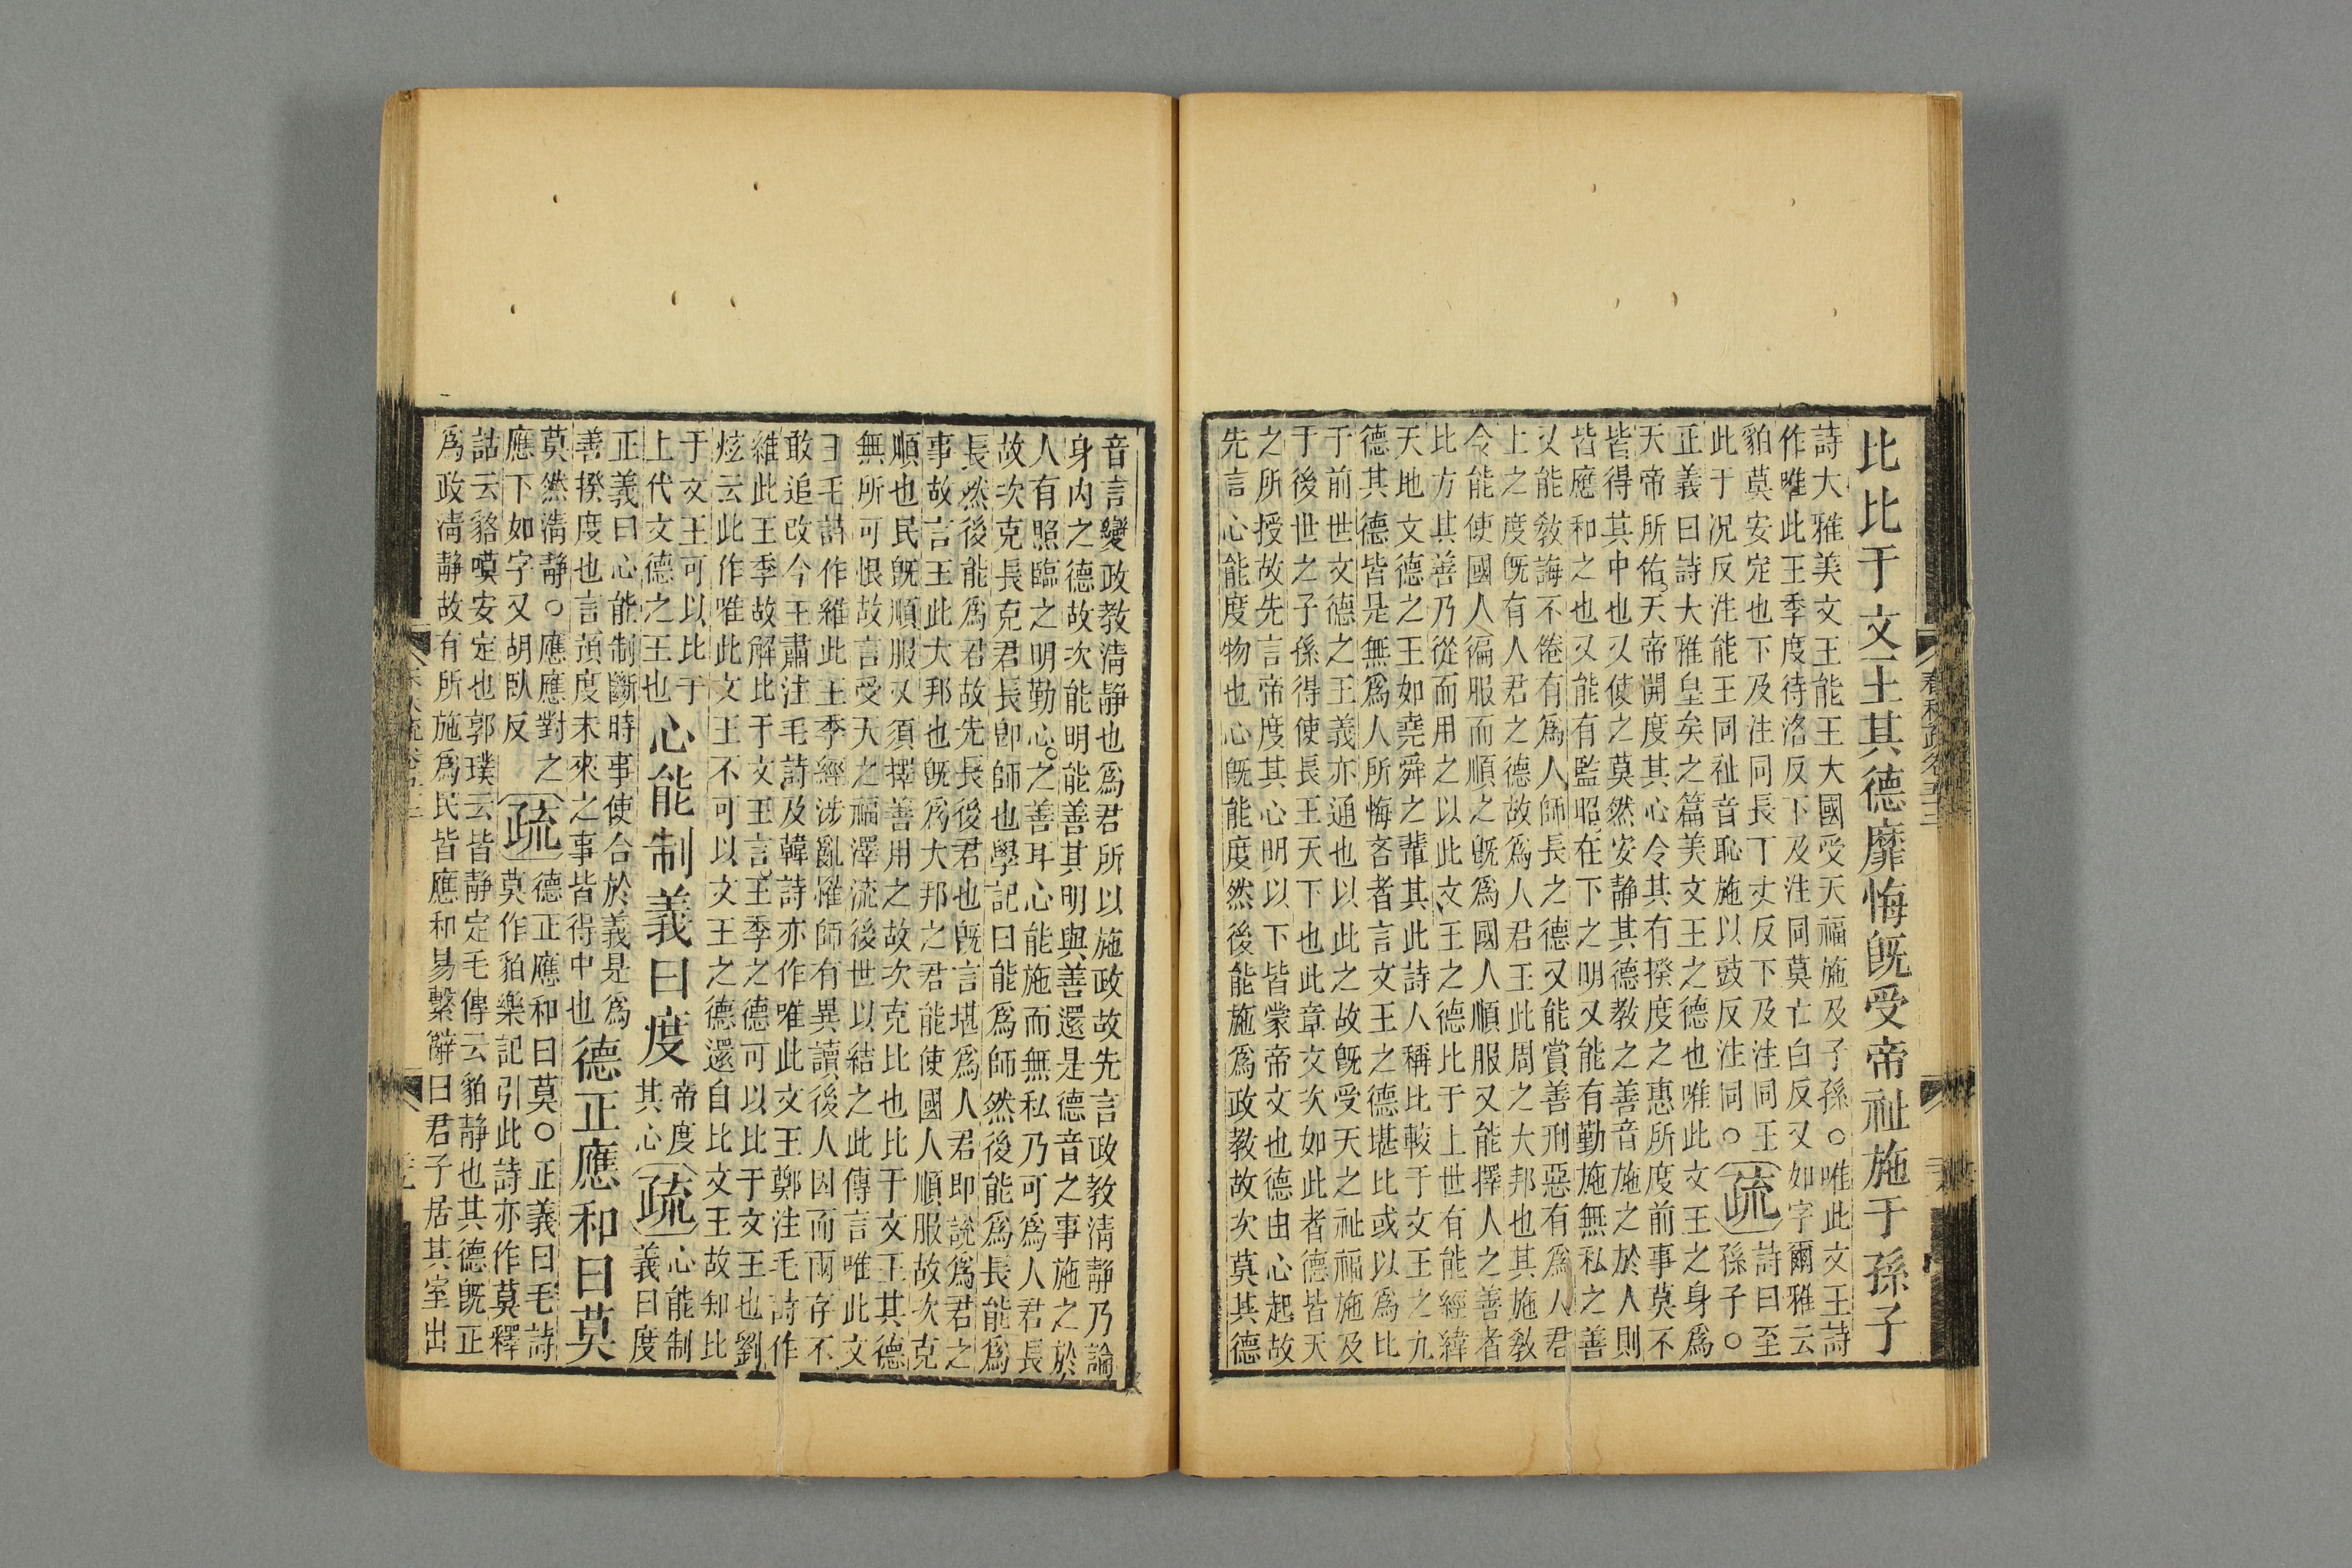 比比于文王其德靡悔旣受帝祉施于孫子
詩大雅美文王能王大國受天福施及子孫○唯此文王詩
作唯此王季度待洛反下及注同莫亡白反又如字爾雅云
貊莫安定也下及注同長丁丈反下及注同王
此于況反注能王同祉音恥施以豉反注同○
疏
詩曰至
孫子○
正義曰詩大雅皇矣之篇美文王之德也唯此文王之身爲
天帝所佑天帝開度其心令其有揆度之惠所度前事莫不
皆得其中也又使之莫然安靜其德敎之善音施之於人則
皆應和之也又能有監昭在下之明又能有勤施無私之善
又能敎誨不倦有爲人師長之德又能賞善刑惡有爲人君
上之度旣有人君之德故爲人君王此周之大邦也其施敎
令能使國人徧服而順之旣爲國人順服又能擇人之善者
比方其善乃從而用之以此文王之德比于上世有能經緯
天地文德之王如堯舜之輩其此詩人稱比較于文王之九
德其德皆是無爲人所悔吝者言文王之德堪比或以爲比
于前世文德之王義亦通也以此之故旣受天之祉福施及
于後世之子孫得使長王天下也此章文次如此者德皆天
之所授故先言帝度其心明以下皆蒙帝文也德由心起故
先言心能度物也心旣能度然後能施爲政敎故次莫其德
音言變政教淸靜也爲君所以施政故先言政教淸靜乃論
身內之德故次能明能善其明與善還是德音之事施之於
人有照臨之明勤心之善耳心能施而無私乃可爲人君長
故次克長克君長卽師也學記曰能爲師然後能爲長能爲
長然後能爲君故先長後君也旣言堪爲人君卽說爲君之
事故言王此大邦也旣爲大邦之君能使國人順服故次克
順也民旣順服又須擇善用之故次克比也比于文王其德
無所可恨故言受天之福澤流後世以結之此傳言唯此文
曰毛詩作維此王季經涉亂離師有異讀後人因而兩存不
敢追改今王肅注毛詩及韓詩亦作唯此文王鄭注毛詩作
維此王季故解比于文王言王季之德可以比于文王也劉
炫云此作唯此文王不可以文王之德還自比文王故知比
于文王可以比于
上代文德之王也
心能制義曰度
帝度
其心
疏
心能制
義曰度
正義曰心能制斷時事使合於義是爲
善揆度也言預度未來之事皆得中也
德正應和曰莫
莫然淸靜○應應對之
應下如字又胡臥反
疏
德正應和曰莫○正義曰毛詩
莫作貊樂記引此詩亦作莫釋
詁云貉嘆安定也郭璞云皆靜定毛傳云貊靜也其德旣正
爲政淸靜故有所施爲民皆應和易繫辭曰君子居其室出